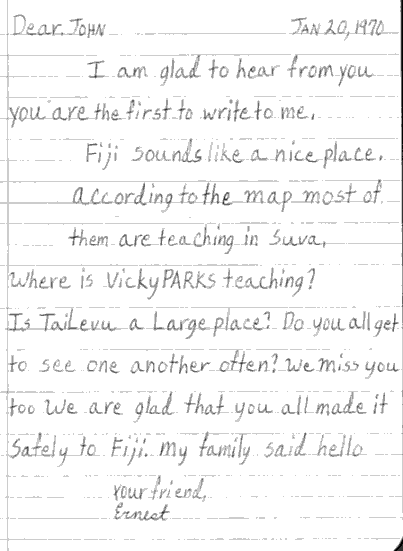 Dear. JOHN JAN 20, 1970
I am glad to hear from you
you are the first to write to me.
Fiji sounds like a nice place.
according to the map most of
them are teaching in Suva,
Where is Vicky PARKS teaching?
Is TaiLevu a Large place? Do you all get
to see one another often? We miss you
too We are glad that you all made it
Safely to Fiji. my family said hello
your friend,
Ernest